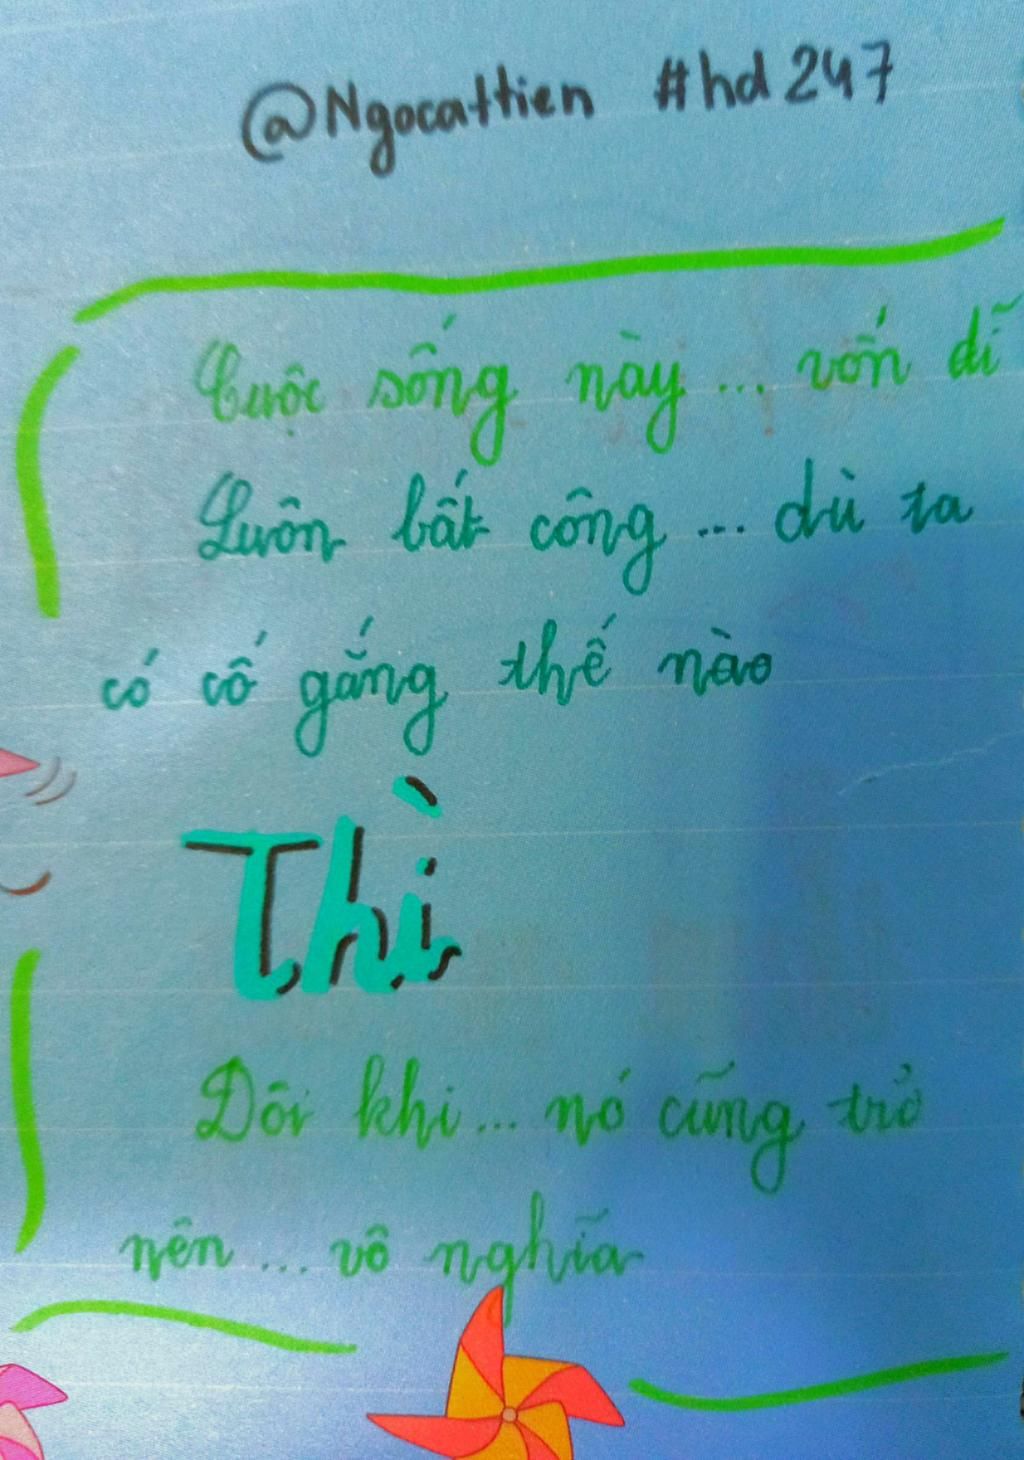 @Ngocattien #hd247
Cuộc sống này... vốn dĩ
Luôn bất công... dù ta
có cố gắng thế nào
Thì
Đôi khi... nó cũng trở
nên... vô nghĩa